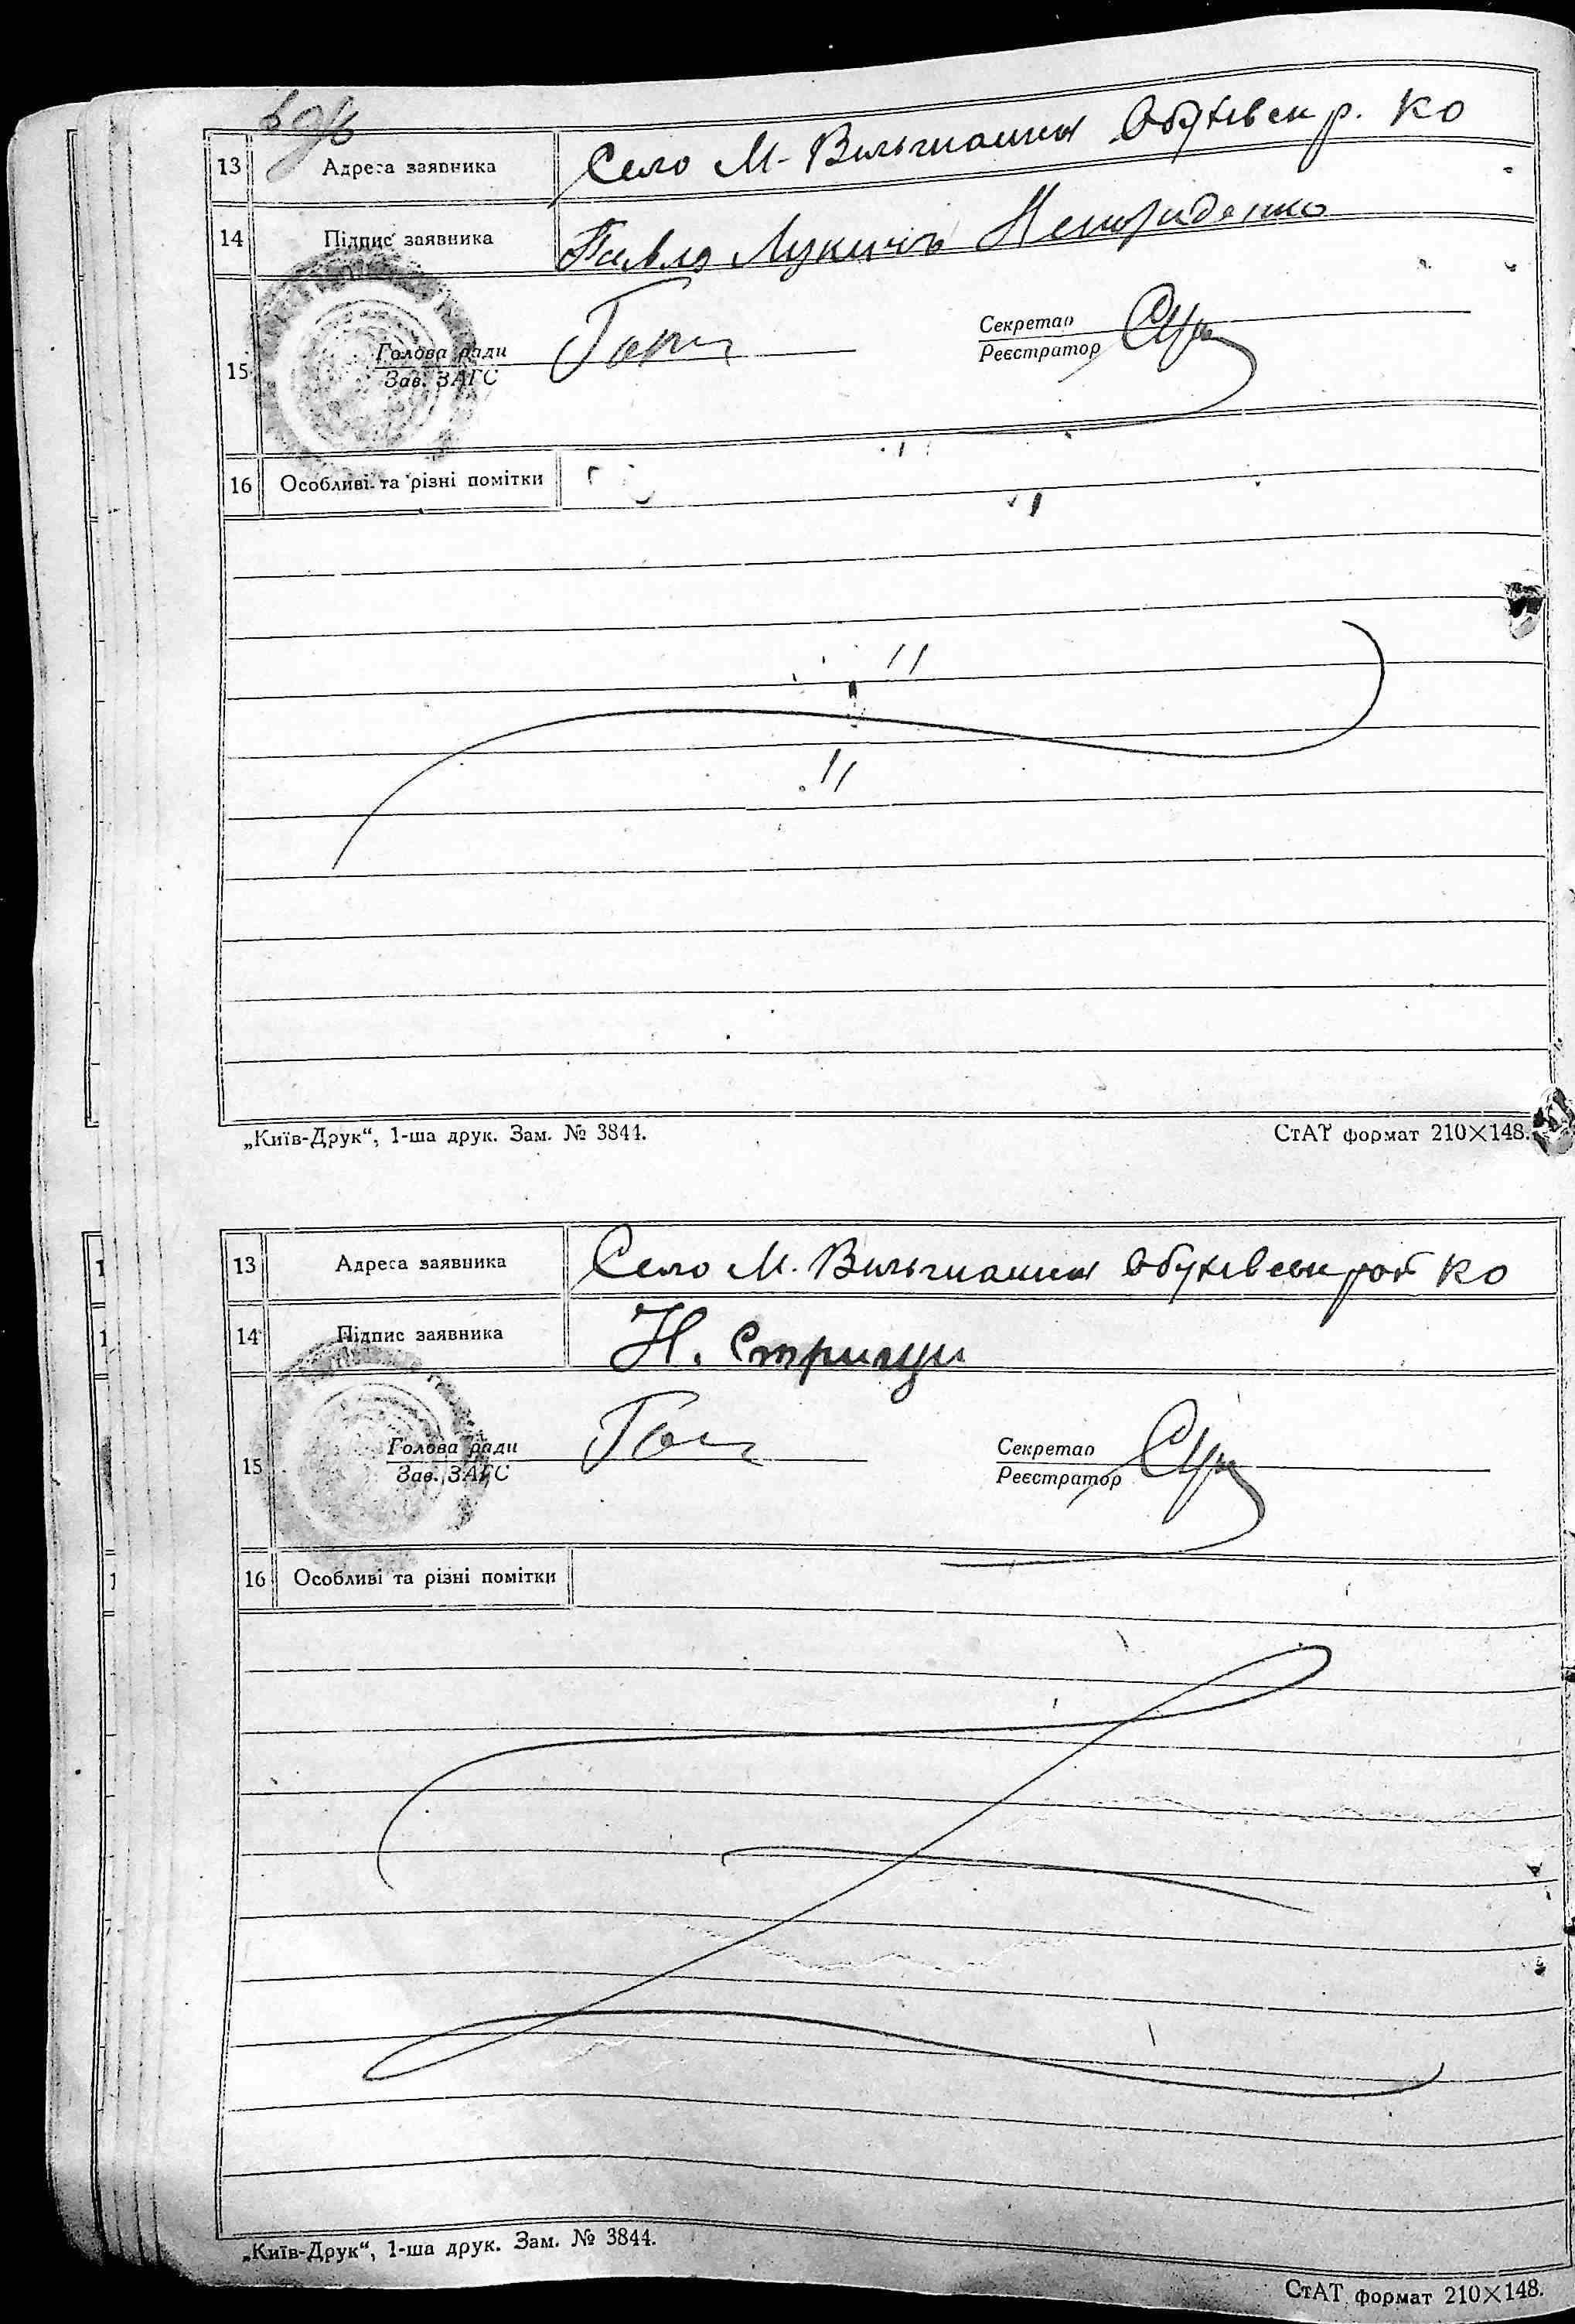 13 Адреса заявника Село М. Вильшанка Обухівськ р. КО
14 Підпис заявника Павло Лукичъ
Секретар
Голова ради
Реєстратор
15
Зав. ЗАГС
16 Особливі та різні помітки
„Київ-Друк“, 1-ша друк. Зам. № 3844.
СтАТ формат 210×148.
13 Адреса заявника Село М. Вильшанка Обухівськ рай КО
14 Підпис заявника Н. Стригун
Голова ради Секретар
15
Зав. ЗАГС Реєстратор
16 Особливі та різні помітки
„Київ-Друк“, 1-ша друк. Зам. № 3844.
СтАТ формат 210×148.